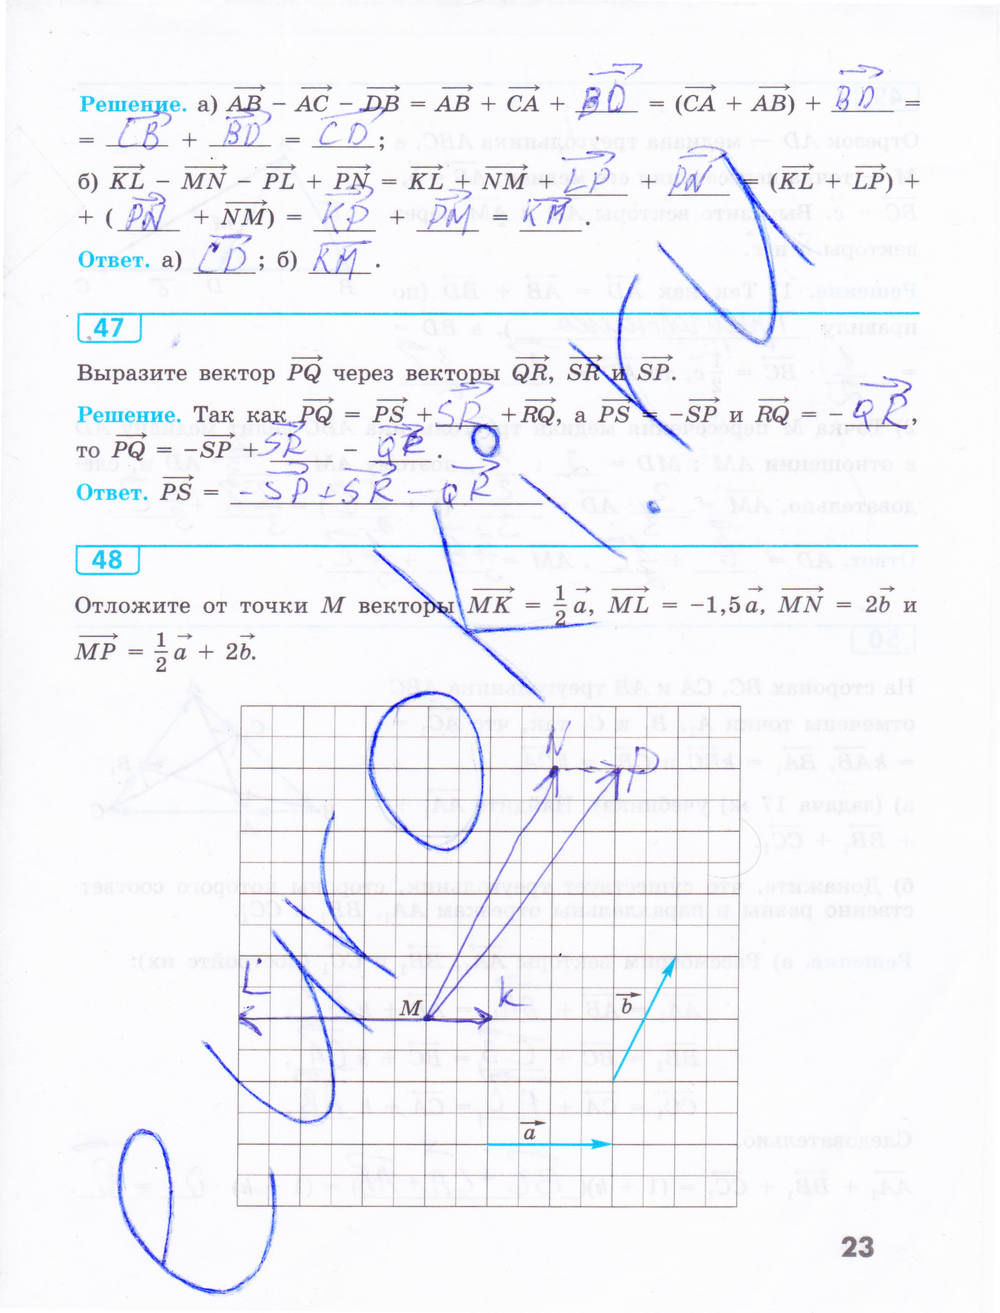 Решение. а) AB − AC − DB = AB + CA + BD = (CA + AB) + BD =
= CB + BD = CD ;
б) KL − MN − PL + PN = KL + NM + LP + PN = (KL + LP) +
+ ( PN + NM) = KP + PM = KM .
Ответ. а) CD ; б) KM .
47
Выразите вектор PQ через векторы QR, SR и SP.
Решение. Так как PQ = PS + SR + RQ, а PS = −SP и RQ = − QR ,
то PQ = −SP + SR − QR .
Ответ. PS = −SP + SR − QR
48
Отложите от точки M векторы MK = 1/2 a, ML = −1,5a, MN = 2b и
MP = 1/2 a + 2b.
N P
L M K
b
a
23